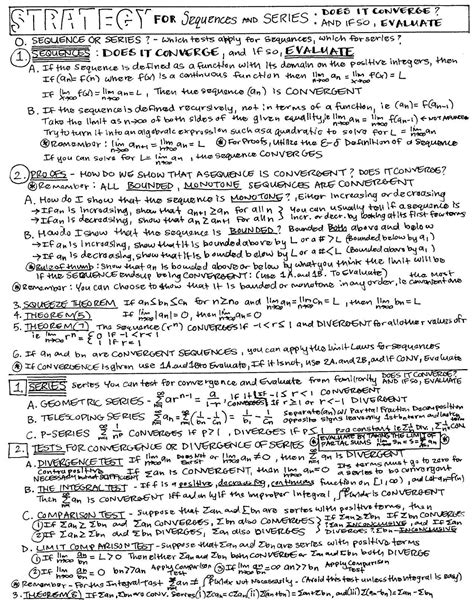 STRATEGY FOR Sequences AND SERIES: DOES IT CONVERGE? AND IF SO, EVALUATE
0. SEQUENCE OR SERIES? - Which tests apply for sequences, which for series?
1. SEQUENCES: DOES IT CONVERGE, and if so, EVALUATE
A. If the sequence is defined as a function with its domain on the positive integers, then
If (an) = f(n) where f(x) is a continuous function then if lim n→∞ an = lim x→∞ f(x) = L
If lim x→∞ f(x) = lim n→∞ an = L, Then the sequence (an) is CONVERGENT
B. If the sequence is defined recursively, not in terms of a function, ie (an) = f(an-1)
Take the limit as n→∞ of both sides of the given equality, ie lim n→∞ an = lim n→∞ f(an-1)
Try to turn it into an algebraic expression such as a quadratic to solve for L = lim n→∞ an
*Remember: lim n→∞ an+1 = lim n→∞ an = L *For Proofs, Utilize the Definition of a Sequence
If you can solve for L = lim n→∞ an, the sequence CONVERGES
2. PROOFS - HOW DO WE SHOW THAT A SEQUENCE IS CONVERGENT? DOES IT CONVERGE?
*Remember: ALL BOUNDED, MONOTONE SEQUENCES ARE CONVERGENT
A. How do I show that the sequence is MONOTONE?, Either increasing or decreasing
→If an is increasing, show that an+1 ≥ an for all n } You can usually tell if a sequence is
→If an is decreasing, show that an ≥ an+1 for all n } incr. or decr. by looking at its first few terms
B. How do I show that the sequence is BOUNDED? Bounded Both above and below
→If an is increasing, show that it is bounded above by L or a # > L (Bounded below by a1)
→If an is decreasing, show that it is bounded below by L or a # < L (Bounded above by a1)
*Rule of thumb: Show that an is bounded above or below by what you think the limit will be
If the SEQUENCE ends up being CONVERGENT: (Use 1A and 1B. To Evaluate) the most
*Remember: You can choose to show that it is bounded or monotone in any order, ie convenient one
3. SQUEEZE THEOREM If an ≤ bn ≤ cn for n ≥ n0 and lim n→∞ an = lim n→∞ cn = L, then lim n→∞ bn = L
4. THEOREM(5) If lim n→∞ |an| = 0, then lim n→∞ an = 0
5. THEOREM(7) The sequence (r^n) CONVERGES if -1 < r ≤ 1 and DIVERGENT for all other values of r
ie lim n→∞ r^n = { 0 if -1 < r < 1
1 if r = 1
6. If an and bn are CONVERGENT SEQUENCES, you can apply the limit Laws for sequences
*If CONVERGENCE is given use 1A and 1B to Evaluate, If it is not, use 2A. and 2B, and if CONV, Evaluate
1. SERIES Series You can test for convergence and Evaluate from familiarity DOES IT CONVERGE? AND IF SO, EVALUATE
A. GEOMETRIC SERIES - Σ ar^n-1 = a/1-r if |r| < 1 CONVERGENT If r ≥ 1 or r < -1 DIVERGENT
B. TELESCOPING SERIES Separate (an) w/ Partial Fraction Decomposition
opposite signs leave only 1st term
C. P-SERIES Σ 1/n^p CONVERGES if p > 1, DIVERGES if p ≤ 1
2. TESTS FOR CONVERGENCE OR DIVERGENCE OF SERIES *EVALUATE BY TAKING THE LIMIT OF PARTIAL SUMS
A. DIVERGENCE TEST If lim n→∞ an DOES NOT EXIST or lim n→∞ an ≠ 0, then Σ an is DIVERGENT
Contrapositive If Σ an is CONVERGENT, then lim n→∞ an = 0 Its terms must go to zero for
NECESSARY NOT SUFFICIENT a series to be convergent
B. THE INTEGRAL TEST - If f is a positive, decreasing, continuous function on [1, ∞), and let an = f(n)
Then Σ an is CONVERGENT iff the improper integral, is CONVERGENT
C. COMPARISON TEST - Suppose that Σan and Σbn are series with positive terms, then
① If Σan ≤ Σbn and Σbn CONVERGES, Σan also CONVERGES
② If Σan ≥ Σbn and Σbn DIVERGES, Σan also DIVERGES
D. LIMIT COMPARISON TEST - suppose that Σan and Σbn are series with positive terms
① If lim n→∞ an/bn = L > 0 Then either Σan and Σbn both CONVERGE or Σan and Σbn both DIVERGE
② If lim n→∞ an/bn = 0 bn >> an Apply Comparison Test ③ If lim n→∞ an/bn = ∞ an >> bn Apply Comparison Test
*Remember - For the Integral test Not Necessarily - (Avoid this test unless the integral is easy)
3. THEOREM(8) If Σan, Σbn are CONV. Series